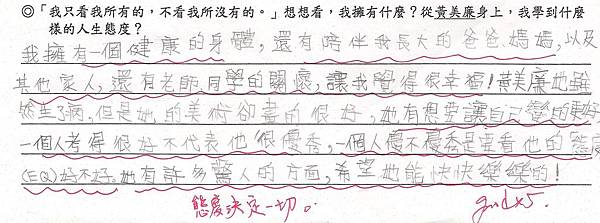 ◎「我只看我所有的,不看我所沒有的。」想想看,我擁有什麼?從黃美廉身上,我學到什麼
樣的人生態度?
我擁有一個健康的身體,還有陪伴我長大的爸爸媽媽,以及
其他家人,還有老師同學的關懷,讓我覺得很幸福!黃美廉她雖
然生了病,但是她的美術卻畫的很好,她有想要讓自己變的更好
一個人考得很好不代表他很優秀,一個人優不優秀是要看他的態度
(EQ)好不好。她有許多驚人的方面,希望她能快快樂樂的!
態度決定一切。
good x5.